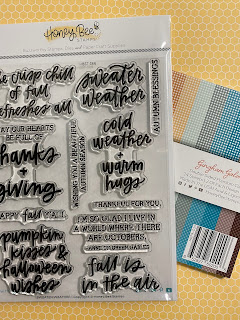 Honey Bee
the crisp chill
of fall
refreshes all
sweater
weather
AUTUMN BLESSINGS
MAY OUR HEARTS
BE FULL OF
thanks
+
giving
WISHING YOU A BEAUTIFUL
AUTUMN SEASON
cold
weather
+
warm
hugs
HAPPY fall Y'ALL
THANKFUL FOR YOU
pumpkin
kisses &
halloween
wishes
I'M SO GLAD I LIVE IN
A WORLD WHERE THERE
ARE OCTOBERS.
fall is
in the air
Gingham